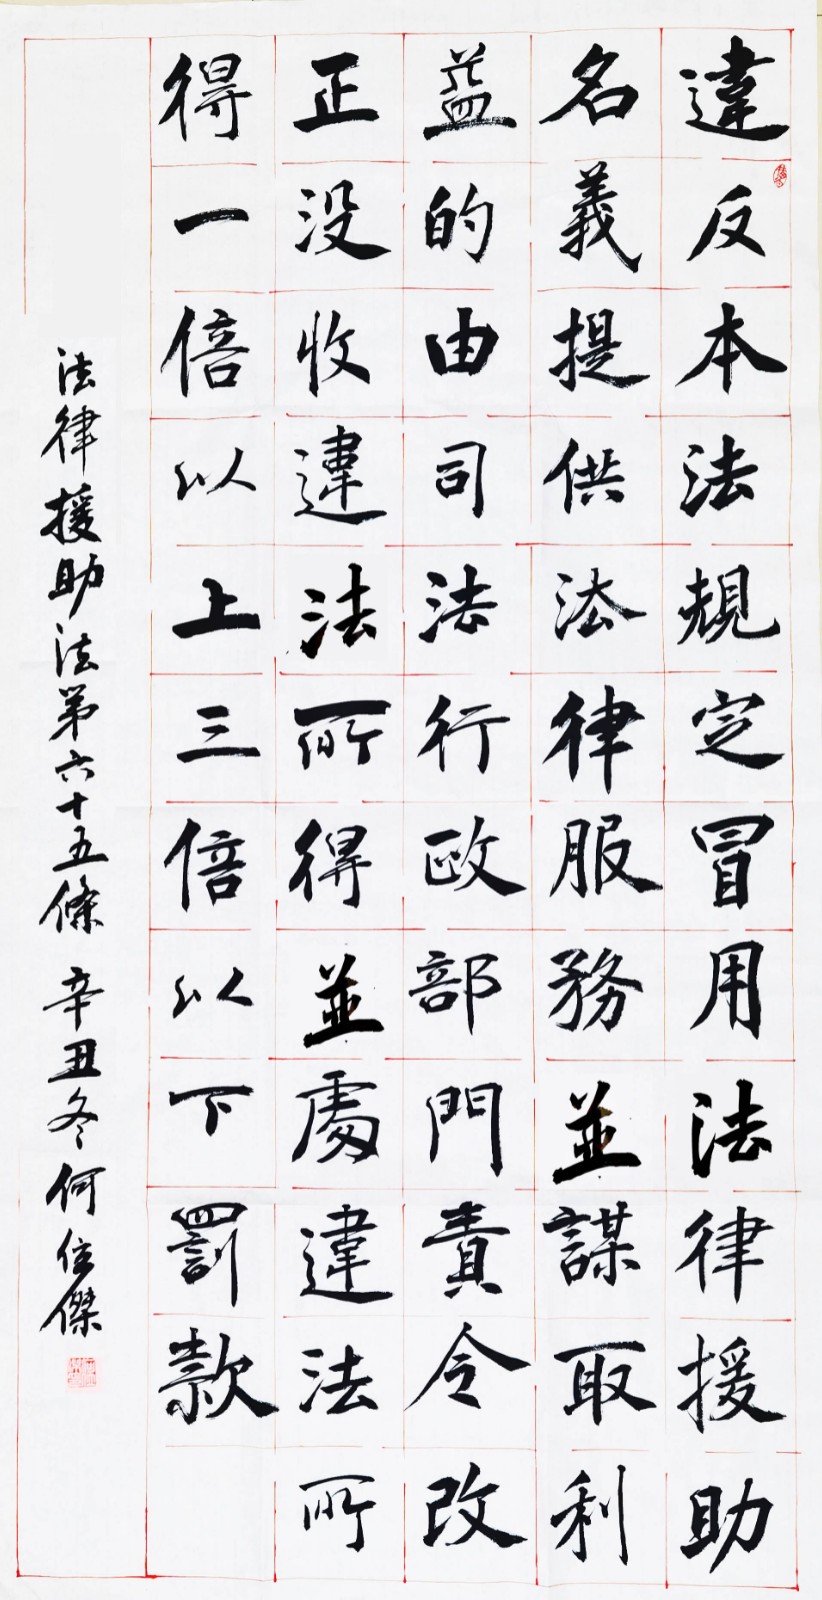 違反本法規定冒用法律援助
名義提供法律服務並謀取利
益的由司法行政部門責令改
正没收違法所得並處違法所
得一倍以上三倍以下罰款
法律援助法第六十五條 辛丑冬何住傑